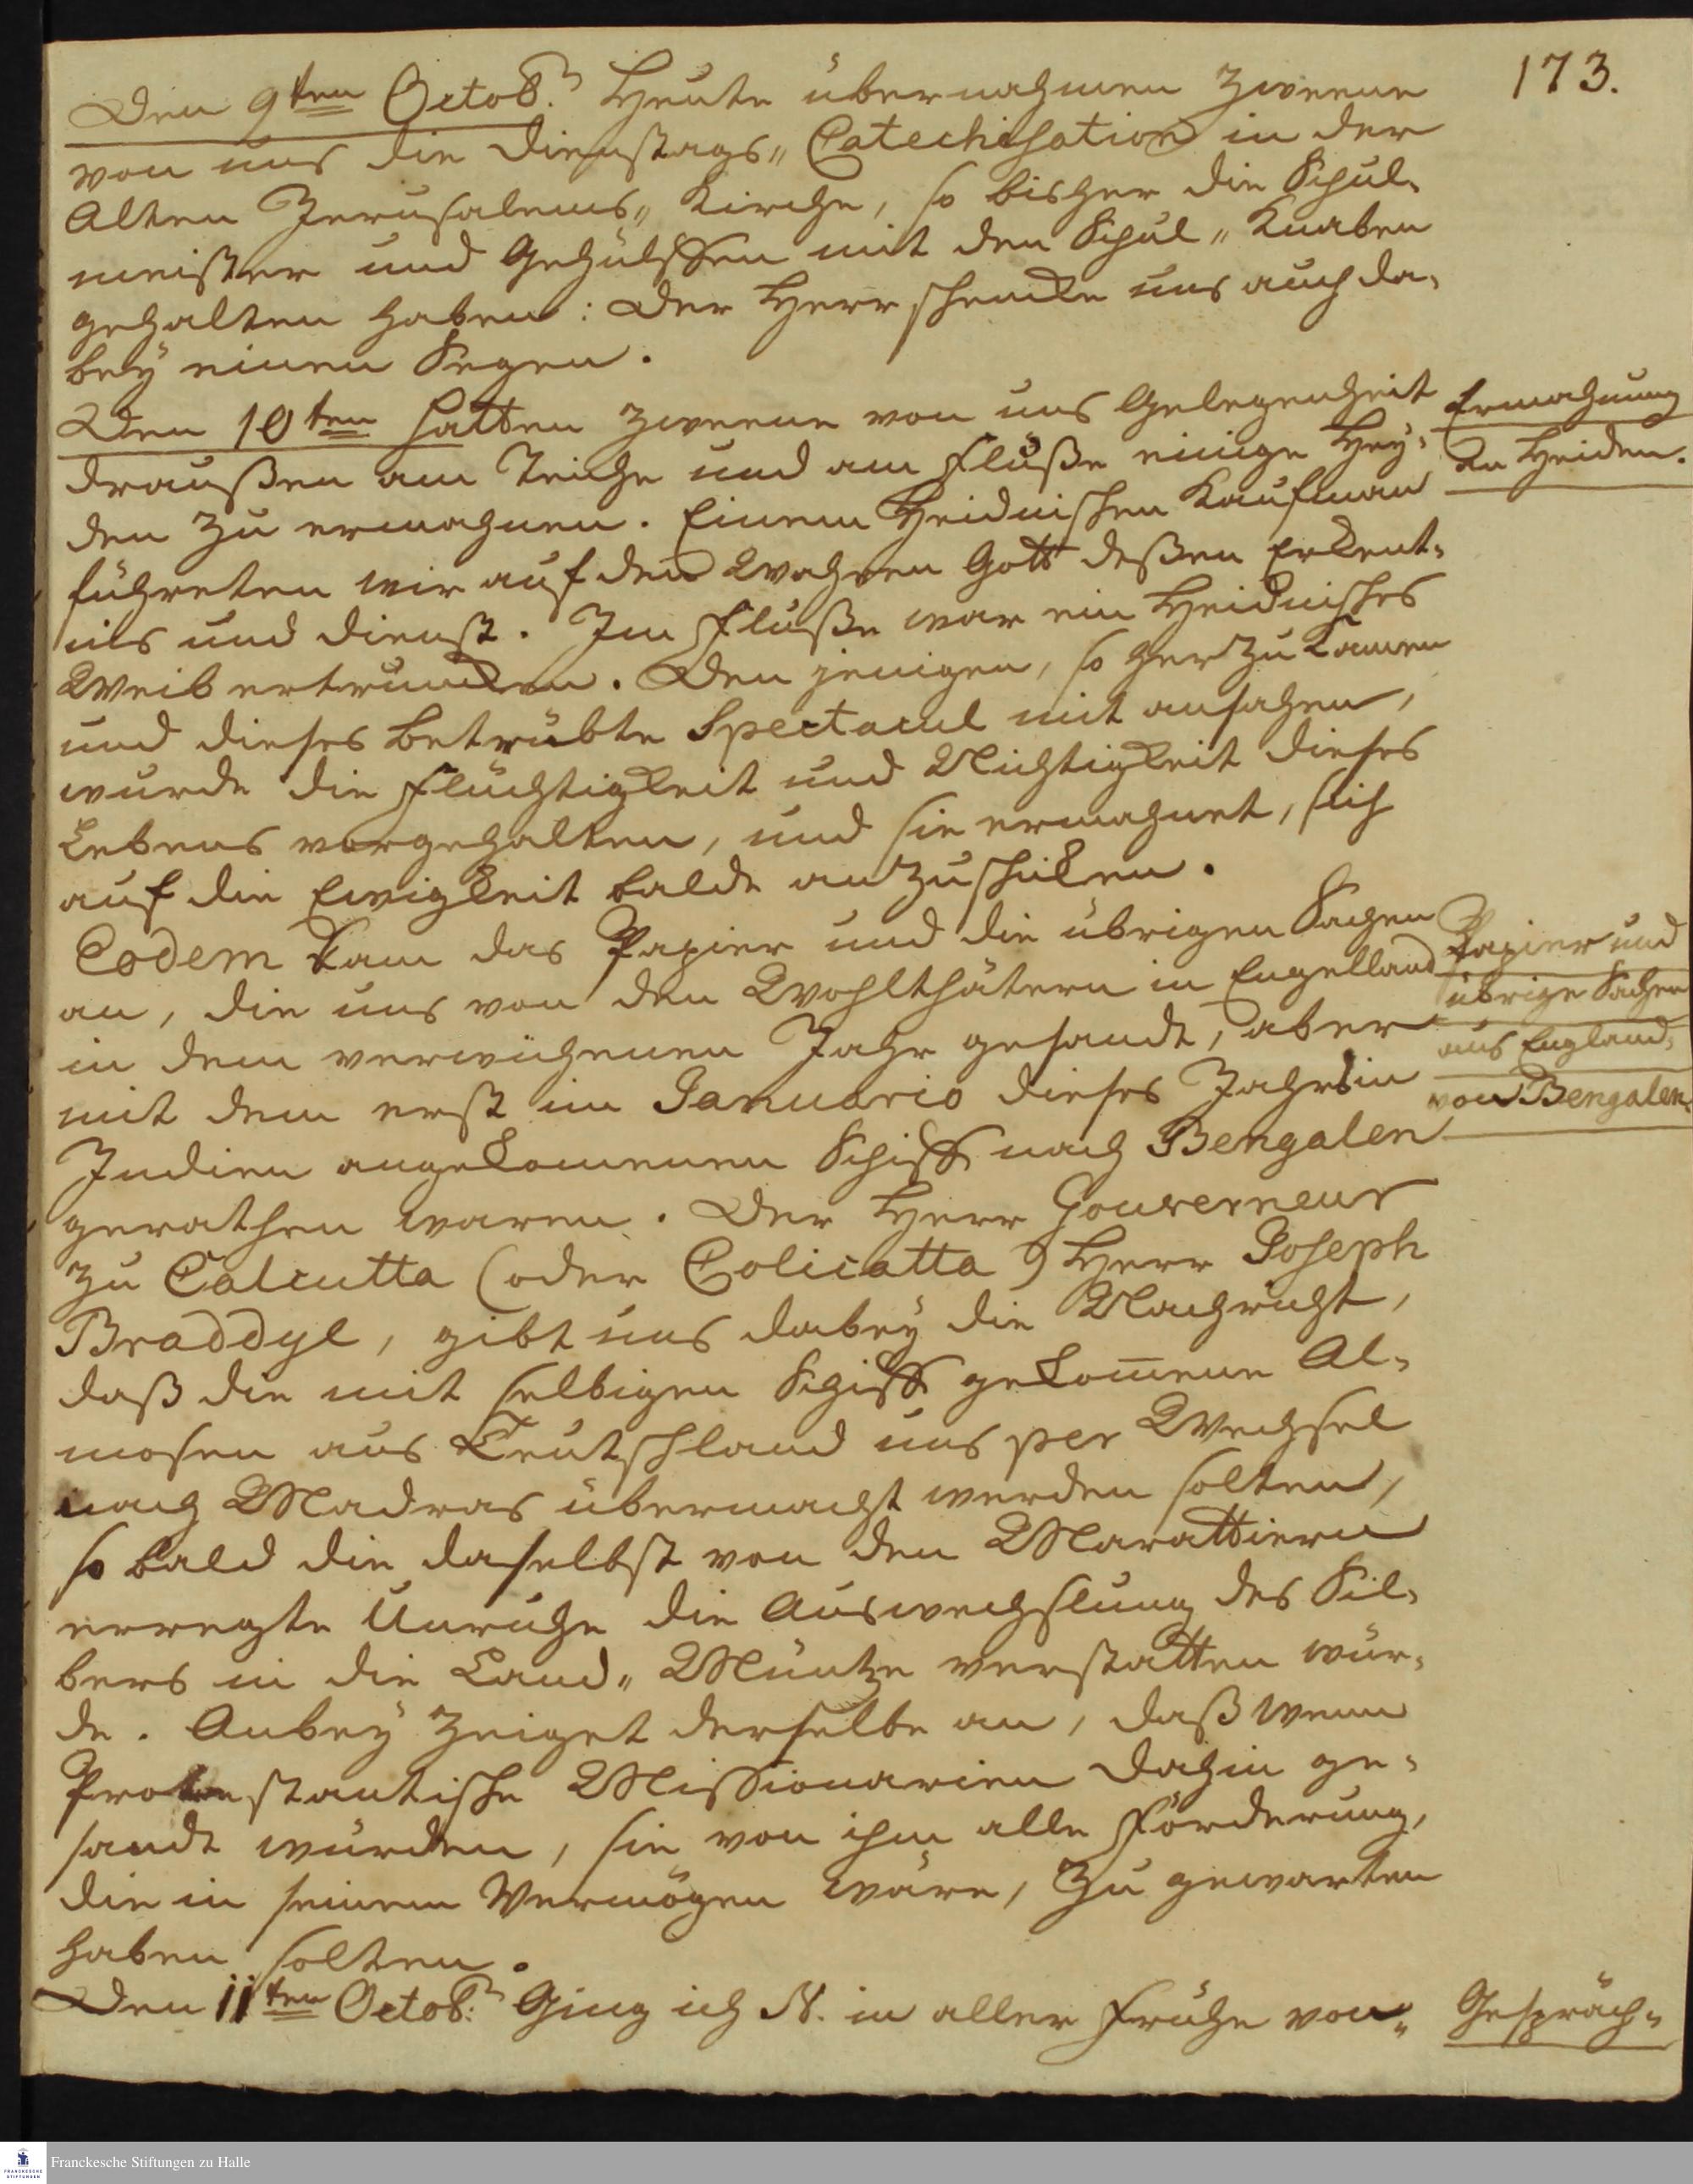 173.
Den 9ten Octob. Heute übernahmen zweene
von uns die Dienstags„ Catechisation in der
Alten Jerusalems„ Kirche, so bisher die Schul„
meister und Gehülffen mit den Schul„ Knaben
gehalten haben: Der Herr schencke uns auch da„
bey einen Segen.
Den 10ten hatten zweene von uns Gelegenheit
draußen am Teiche und am Fluße einige Hey„
den zu ermahnen. Einem Heidnischen Kaufman
führeten wir auf den Wahren Gott deßen Erkent„
nis und Dienst. Im Fluße war ein Heidnisches
Weib ertruncken. Den jenigen, so herzu kamen
und dieses betrübte Spectacul mit ansahen,
wurde die Flüchtigkeit und Nichtigkeit dieses
Lebens vorgehalten, und sie ermahnet, sich
auf die Ewigkeit balde anzuschicken.
Ermahnung
An Heiden.
Eodem kam das Papier und die übrigen Sachen
an, die uns von den Wohlthätern in Engelland
in dem verwichenen Jahr gesandt, aber
mit dem erst im Januario dieses Jahrs in
Indien angekommenen Schiff nach Bengalen
gerathen waren. Der Herr Gouverneur
zu Calcutta (oder Colicatta) Herr Joseph
Braddyl, gibt uns dabey die Nachricht,
daß die mit selbigen Schiff gekom̄ene Al„
mosen aus Teutschland uns per Wechsel
nach Madras übermacht werden solten,
so bald die daselbst von den Marattiern
erregte Unruhe die Auswechslung des Sil„
bers in die Land„ Müntze verstatten wür„
de. Anbey zeiget derselbe an, daß wenn
Protestantische Missionarien dahin ge„
sandt würden, sie von ihm alle Förderung,
die in seinem Vermögen wäre, zu gewarten
haben solten.
Papier und
übrige Sachen
aus England,
von Bengalen.
Den 11ten Octob. Ging ich N. in aller Frühe von„
Gespräch„
Franckesche Stiftungen zu Halle
FRANCKESCHE
STIFTUNGEN